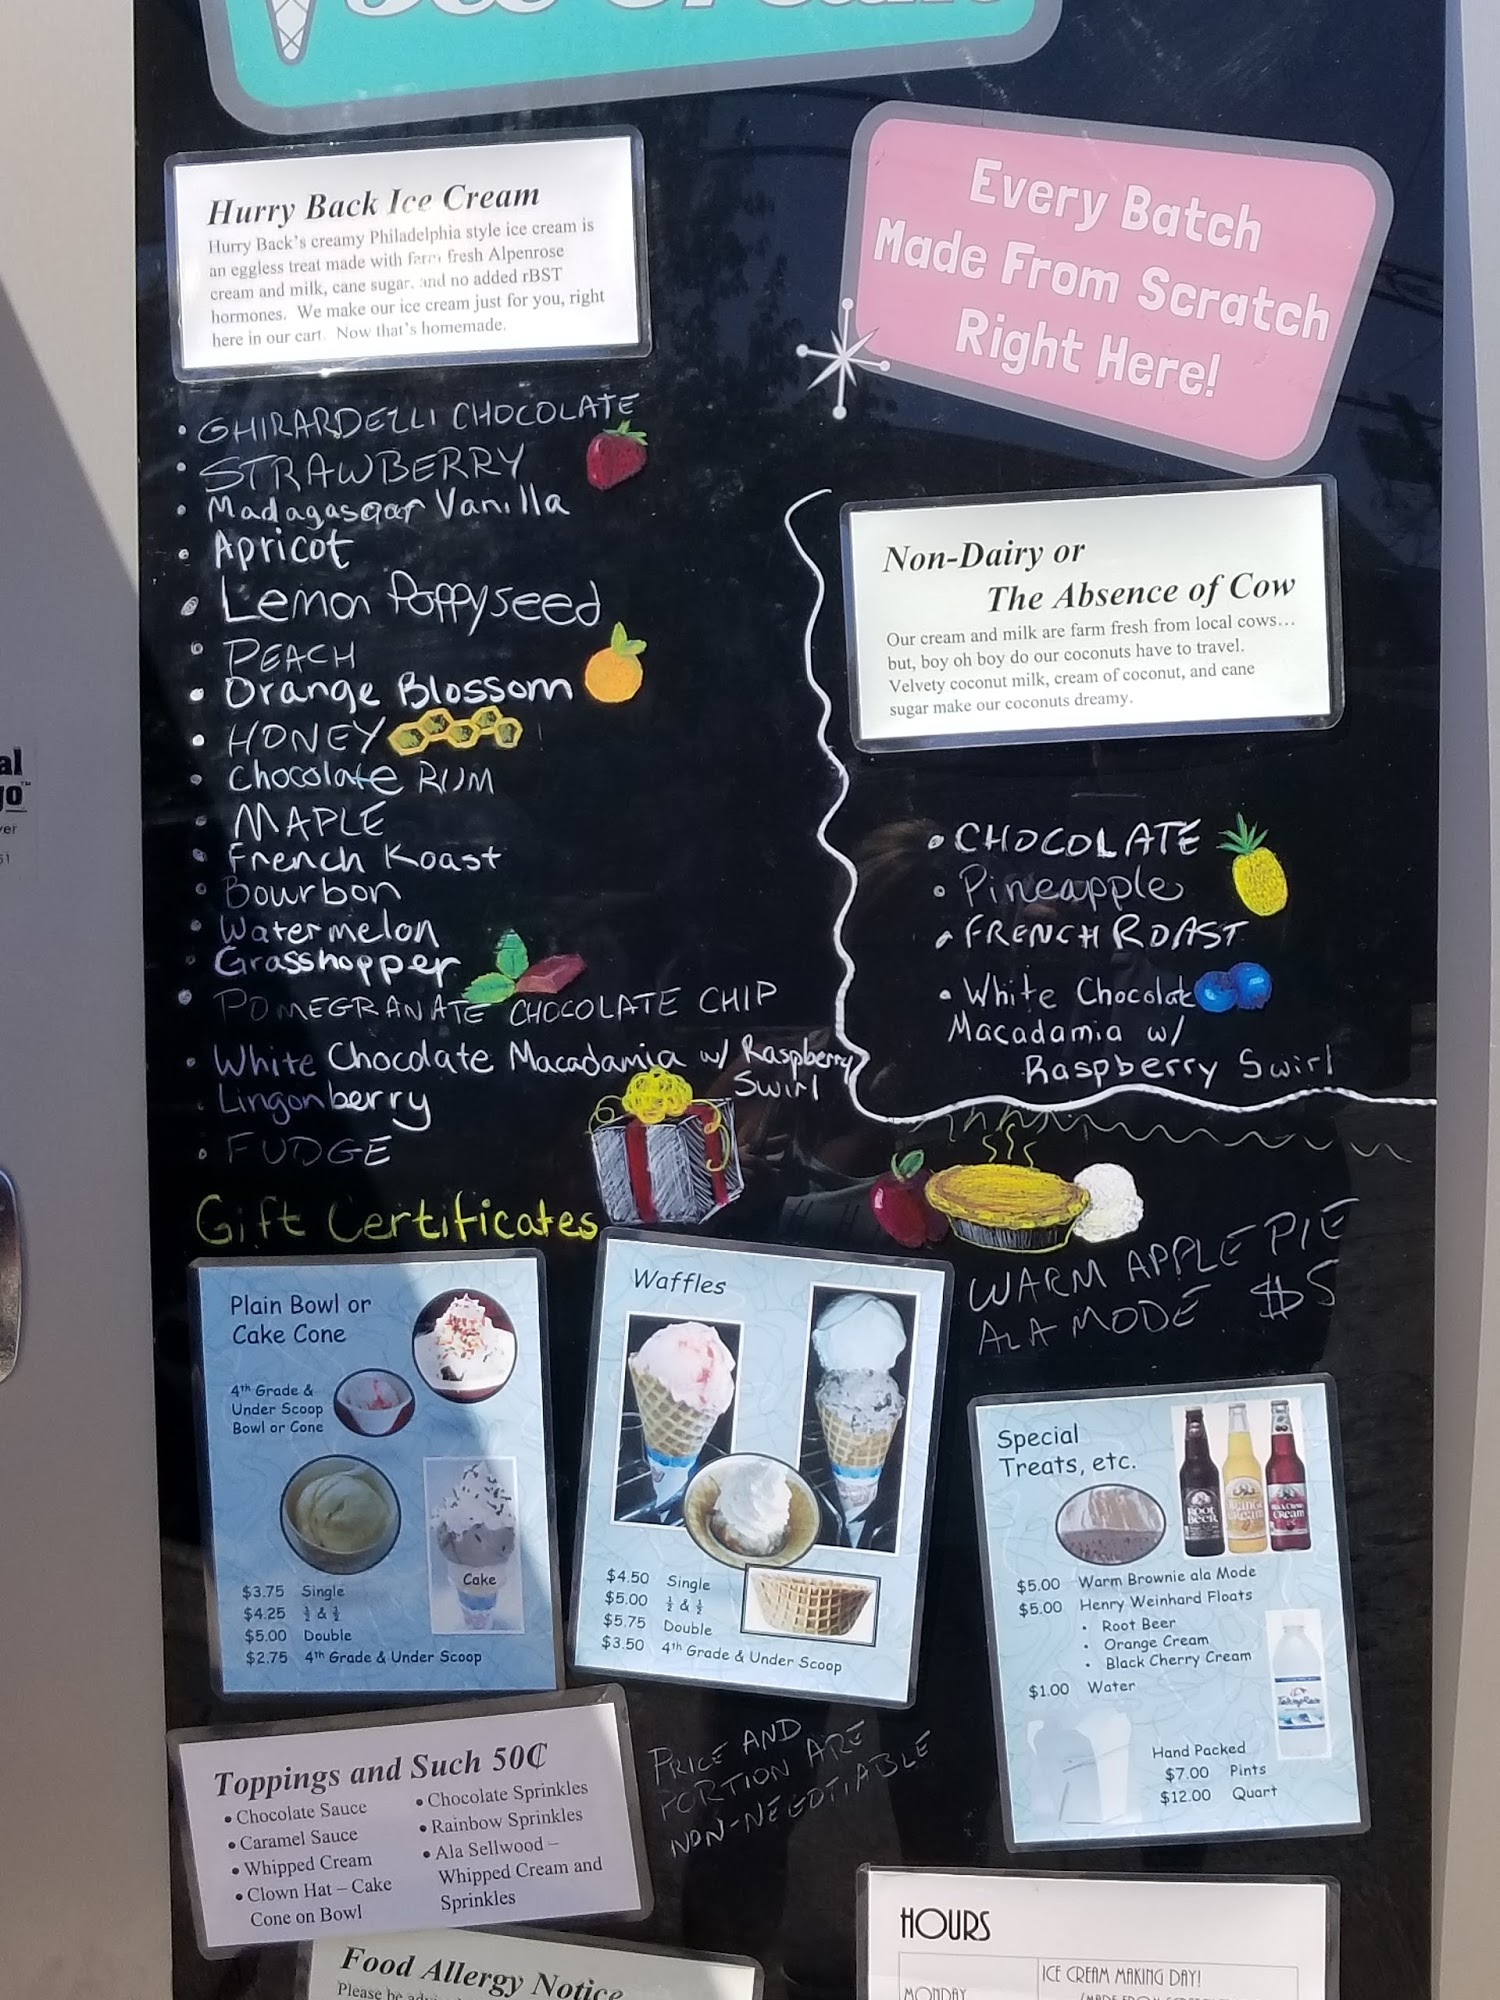 Ice Cream
Every Batch
Made From Scratch
Right Here!
Hurry Back Ice Cream
Hurry Back's creamy Philadelphia style ice cream is
an eggless treat made with farm fresh Alpenrose
cream and milk, cane sugar, and no added rBST
hormones. We make our ice cream just for you, right
here in our cart. Now that's homemade.
• GHIRARDELLI CHOCOLATE
• STRAWBERRY
• Madagascar Vanilla
• Apricot
• Lemon Poppyseed
• PEACH
• Orange Blossom
• HONEY
• Chocolate RUM
• MAPLE
• French Roast
• Bourbon
• Watermelon
• Grasshopper
• POMEGRANATE CHOCOLATE CHIP
• White Chocolate Macadamia w/ Raspberry
Swirl
• Lingonberry
• FUDGE
Non-Dairy or
The Absence of Cow
Our cream and milk are farm fresh from local cows…
but, boy oh boy do our coconuts have to travel.
Velvety coconut milk, cream of coconut, and cane
sugar make our coconuts dreamy.
• CHOCOLATE
• Pineapple
• FRENCH ROAST
• White Chocolate
Macadamia w/
Raspberry Swirl
Gift Certificates
WARM APPLE PIE
ALA MODE $5
Plain Bowl or
Cake Cone
4th Grade &
Under Scoop
Bowl or Cone
Cake
$3.75 Single
$4.25 ½ & ½
$5.00 Double
$2.75 4th Grade & Under Scoop
Waffles
$4.50 Single
$5.00 ½ & ½
$5.75 Double
$3.50 4th Grade & Under Scoop
Special
Treats, etc.
ROOT
BEER
Orange
Cream
Black Cherry
CREAM
$5.00 Warm Brownie ala Mode
$5.00 Henry Weinhard Floats
• Root Beer
• Orange Cream
• Black Cherry Cream
$1.00 Water
Hand Packed
$7.00 Pints
$12.00 Quart
Toppings and Such 50₵
• Chocolate Sauce
• Caramel Sauce
• Whipped Cream
• Clown Hat – Cake
Cone on Bowl
• Chocolate Sprinkles
• Rainbow Sprinkles
• Ala Sellwood –
Whipped Cream and
Sprinkles
PRICE AND
PORTION ARE
NON-NEGOTIABLE
Food Allergy Notice
Please be
HOURS
MONDAY
ICE CREAM MAKING DAY!